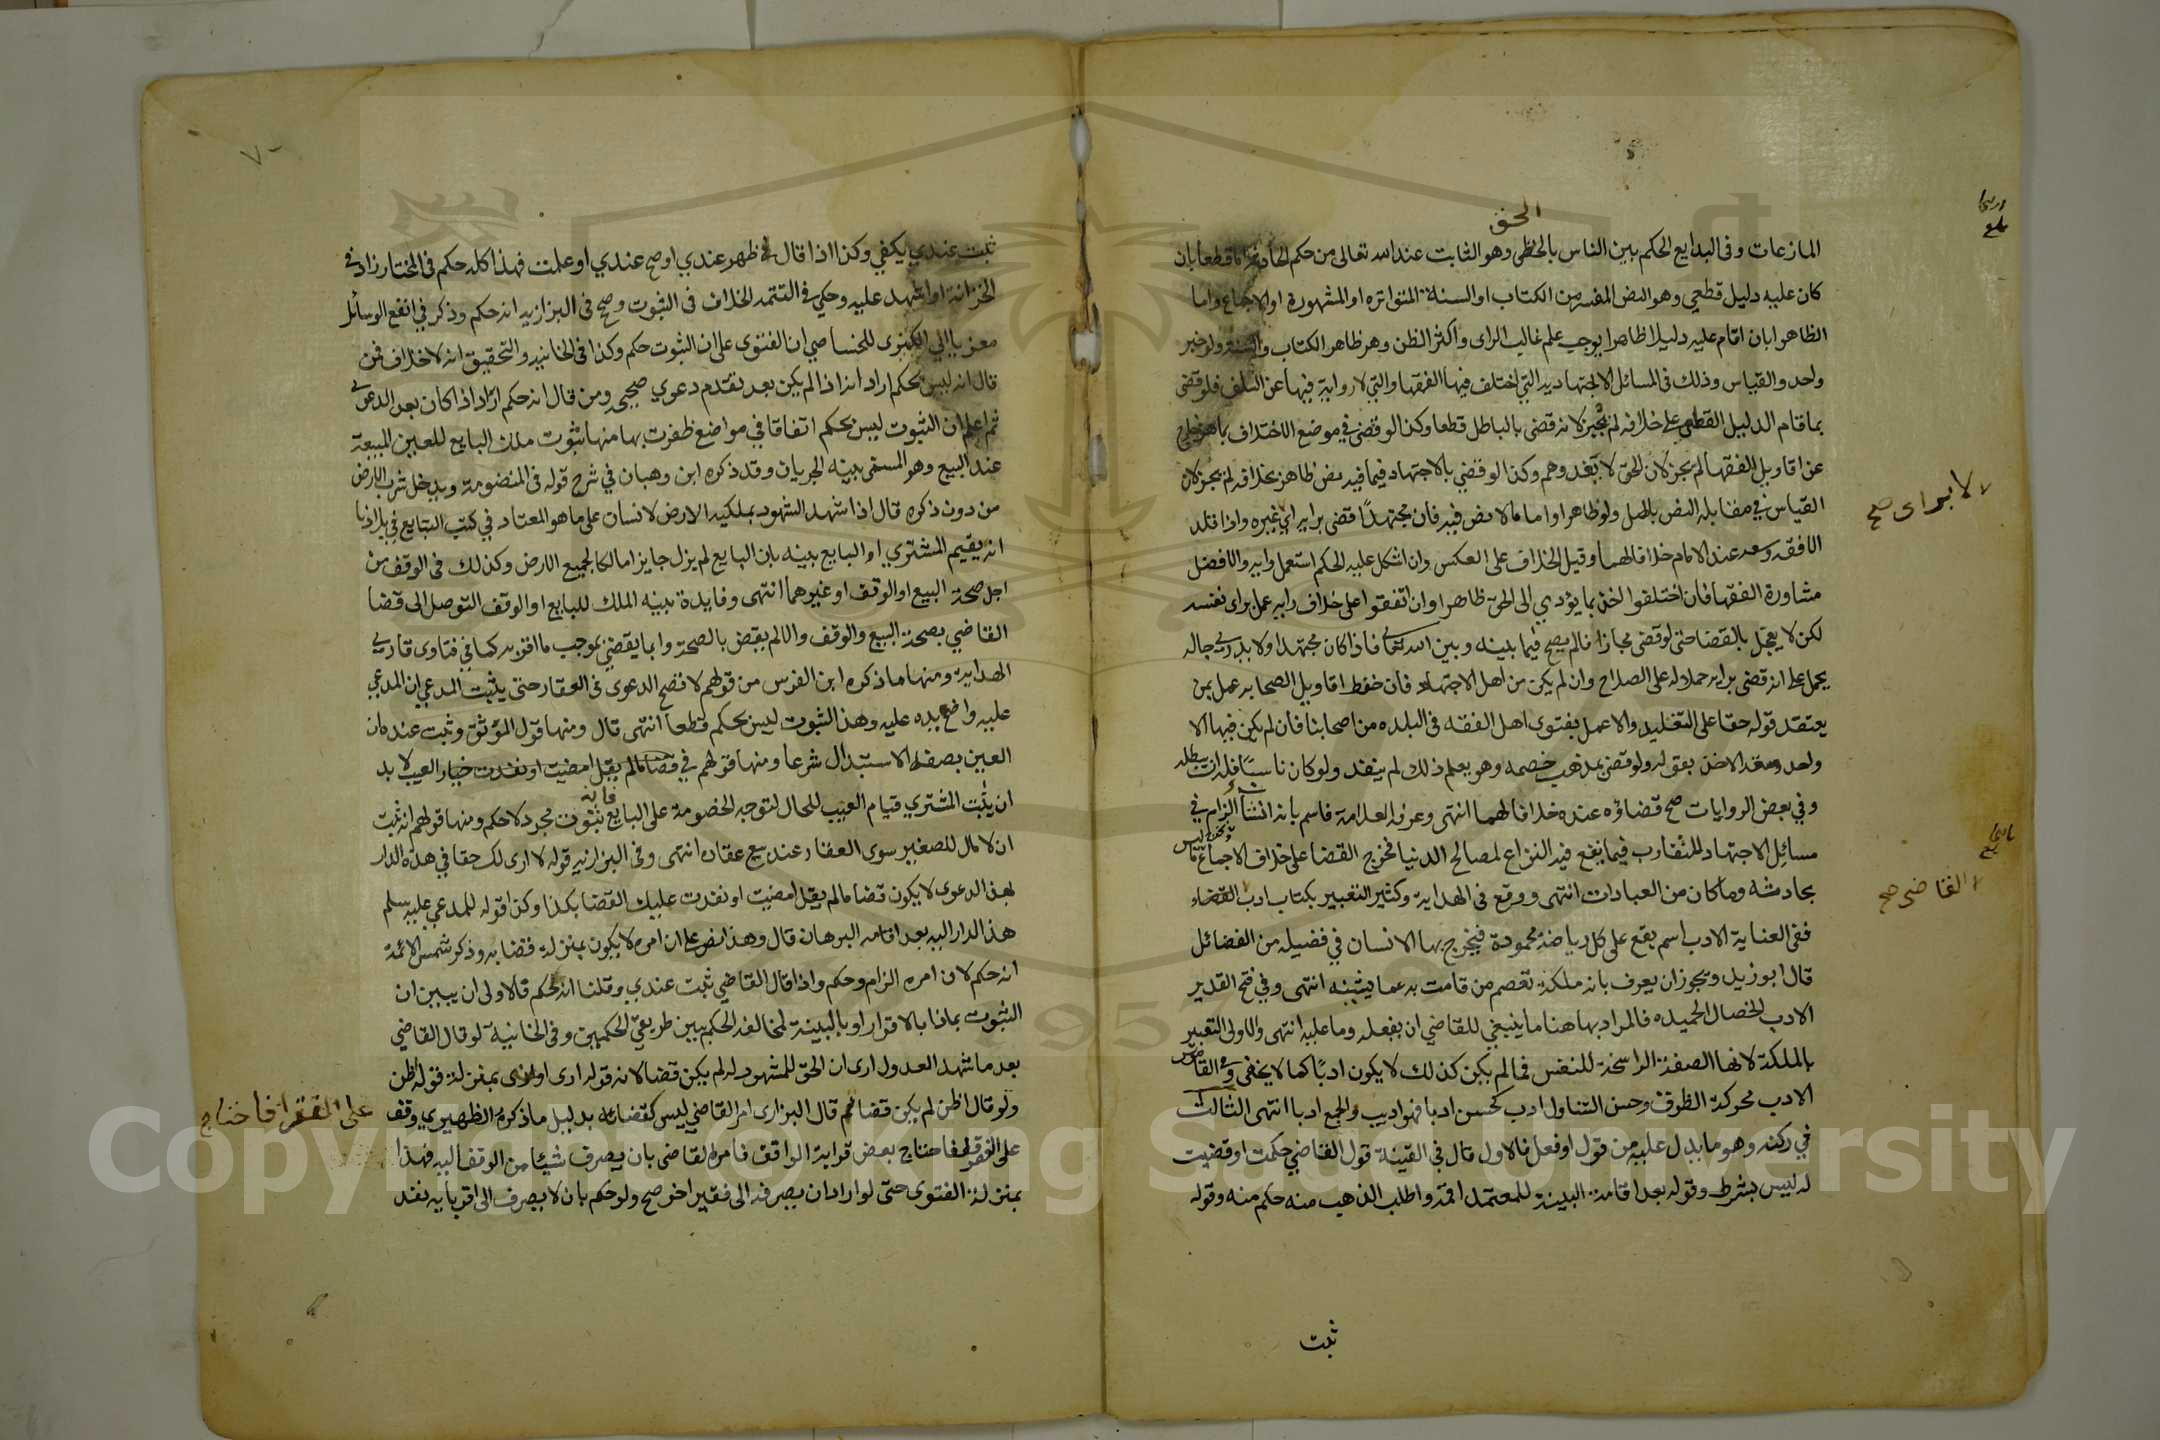 الحق
المنازعات وفى البدايع الحكم بين الناس بالحق وهو الثابت عند الله تعالى من حكم الحادثة اما قطعا بان
كان عليه دليل قطعي وهو النص المفسر من الكتاب او السنة المتواتره او المشهورة او الاجماع واما
الظاهر ابان اقام عليه دليلا ظاهرا يوجب علم غالب الراى واكثر الظن وهو ظاهر الكتاب والسنة ولو خبر
واحد والقياس وذلك فى المسائل الاجتهاديه التي اختلف فيها الفقها والتي لا رواية فيها عن السلف فلو قضى
بما قام الدليل القطعي على خلافه لم يجز لانه قضى بالباطل قطعا وكذا لو قضى في موضع الاختلاف بما هو خارج
عن اقاويل الفقها لم يجز لان الحق لا يتعدوهم وكذا لو قضي بالاجتهاد فيما فيه نص ظاهر بخلافه لم يجز لان
القياس في مقابلة النص باطل ولو ظاهرا واما ما لا نص فيه فان مجتهدًا قضى برايه لا براى غيره واذا قلد
الافقه وسعه عند الامام خلافا لهما وقيل الخلاف على العكس وان اشكل عليه الحكم استعمل رايه والافضل
مشاورة الفقها فان اختلفوا اخذ بما يؤدي الى الحق ظاهرا وان اتفقوا على خلاف رايه عمل براى نفسه
لكن لا يعجل بالقضا حتى لو قضى مجازفا لم يصح فيما بينه وبين الله تعالى فاذا كان مجتهدا ولا يدرى حاله
يحمل على انه قضى برايه حملا له على الصلاح وان لم يكن من اهل الاجتهاد فان حفظ اقاويل الصحابه عمل بمن
يعتقد قوله حقا على التقليد والا عمل بفتوى اهل الفقه فى البلده من اصحابنا فان لم يكن فيها الا
واحد وسعه الاخذ بقوله ولو قضى بمذهب خصمه وهو يعلم ذلك لم ينفذ ولو كان ناسيًا فله ان يبطله
وفي بعض الروايات صح قضاؤه عنده خلافا لهما انتهى وعرفه العلامة قاسم بانه انشا الزام في
مسائل الاجتهاد المتقارب فيما يقع فيه النزاع لمصالح الدنيا فخرج القضا على خلاف الاجماع وخرج ما ليس
بحادثه وما كان من العبادات انتهى ووقع فى الهداية وكثير التعبير بكتاب ادب القضاء
ففى العناية الادب اسم يقع على كل رياضة محمودة فيخرج بها الانسان في فضيله من الفضائل
قال ابو زيد ويجوز ان يعرف بانه ملكة تعصم من قامت به عما يشينه انتهى وفي فتح القدير
الادب الخصال الحميده فالمراد بها هنا ما ينبغي للقاضي ان يفعله وما عليه انتهى والاولى التعبير
بالملكة لانها الصفة الراسخة للنفس فما لم يكن كذلك لا يكون ادبًا كما لا يخفى وفي القاموس
الادب محركة الظرف وحسن التناول ادب كحسن ادبا فهو اديب والجمع ادبا انتهى الثالث
في ركنه وهو ما يدل عليه من قول او فعل فالاول قال في القنية قول القاضي حكمت او قضيت
له ليس بشرط وقوله بعد اقامة البينة للمعتمد اقمه واطلب الذهب منه حكم منه وقوله
ثبت
لا براى صح
القاضى صح
ثبت عندي يكفي وكذا اذا قال ظهر عندي او صح عندي او علمت فهذا كله حكم فى المختار زاد في
الخزانة او اشهد عليه وحكي في التتمه الخلاف فى الثبوت وصحح فى البزازيه انه حكم وذكر في انفع الوسائل
معزيا الى الكبرى للخصاصي ان الفتوى على ان الثبوت حكم وكذا فى الخانيه والتحقيق انه لا خلاف فمن
قال انه ليس بحكم اراد انه اذا لم يكن بعد تقدم دعوى صحيحه ومن قال انه حكم اراد اذا كان بعد الدعوى
ثم اعلم ان الثبوت ليس بحكم اتفاقا في مواضع ظفرت بها منها ثبوت ملك البايع للعين المبيعة
عند البيع وهو المسمى ببينه الجريان وقد ذكره ابن وهبان في شرح قوله فى المنضومة ويدخل شرب الارض
من دون ذكره قال اذا شهد الشهود بملكيه الارض لانسان على ما هو المعتاد في كتب التبايع في بلادنا
انه يقيم المشتري او البايع بينه بان البايع لم يزل حايزا مالكا لجميع الارض وكذلك فى الوقف من
اجل صحة البيع او الوقف او غيرهما انتهى وفايدة بينه الملك للبايع او الوقف التوصل الى قضا
القاضي بصحة البيع والوقف والا لم يقض بالصحة وانما يقضى بموجب ما اقرا به كما في فتاوى قاري
الهداية ومنها ما ذكره ابن الغرس من قولهم لا تصح الدعوى فى العقار حتى يثبت المدعي ان المدعى
عليه واضع يده عليه وهذا الثبوت ليس بحكم قطعا انتهى قال ومنها قول الموثق وثبت عنده ان
العين بصفة الاستبدال شرعا ومنها قولهم في خيار العيب لا بد
ان يثبت المشتري قيام العيب للحال لتوجه الخصومة على البايع فانه ثبوت مجرد لا حكم ومنها قولهم انه ثبت
ان لا مال للصغير سوى العقار عند بيع عقاره انتهى وفى البزازيه قوله لا ارى لك حقا في هذه الدار
بهذا الدعوى لا يكون قضا ما لم يقل امضيت او نفذت عليك القضا بكذا وكذا قوله للمدعي عليه سلم
هذا الدار اليه بعد اقامه البرهان قال وهذا نص على ان امره لا يكون بمنزلة قضايه وذكر شمس الائمة
انه حكم لان امره الزام وحكم واذا قال القاضي ثبت عندي وقلنا انه حكم فالاولى ان يبين ان
الثبوت بماذا بالاقرار او بالبينة لمخالفه الحكم بين طريقي الحكمين وفى الخانية لو قال القاضي
بعد ما شهد العدول ارى ان الحق للمشهود له لم يكن قضا لانه قوله ارى بمنزلة قوله اظن
ولو قال اظن لم يكن قضا ثم قال البزازى امر القاضي ليس كقضائه بدليل ما ذكره الظهيري وقف
على الفقرا فاحتاج بعض قرابة الواقف فامر القاضى بان يصرف شيئا من الوقف اليه فهذا
بمنزلة الفتوى حتى لو اراد ان يصرفه الى فقير اخر صح ولو حكم بان لا يصرف الى اقربايه نفذ
على الفقرا فاحتاج
Copyright © King Saud University